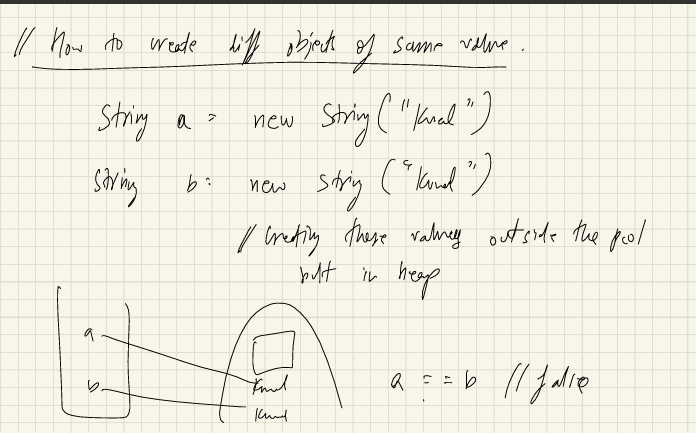 // How to create diff objects of same value.
String a = new String("Kunal")
String b = new String("Kunal")
// creating these values outside the pool
but in heap
a
b
Kunal
Kunal
a == b // false